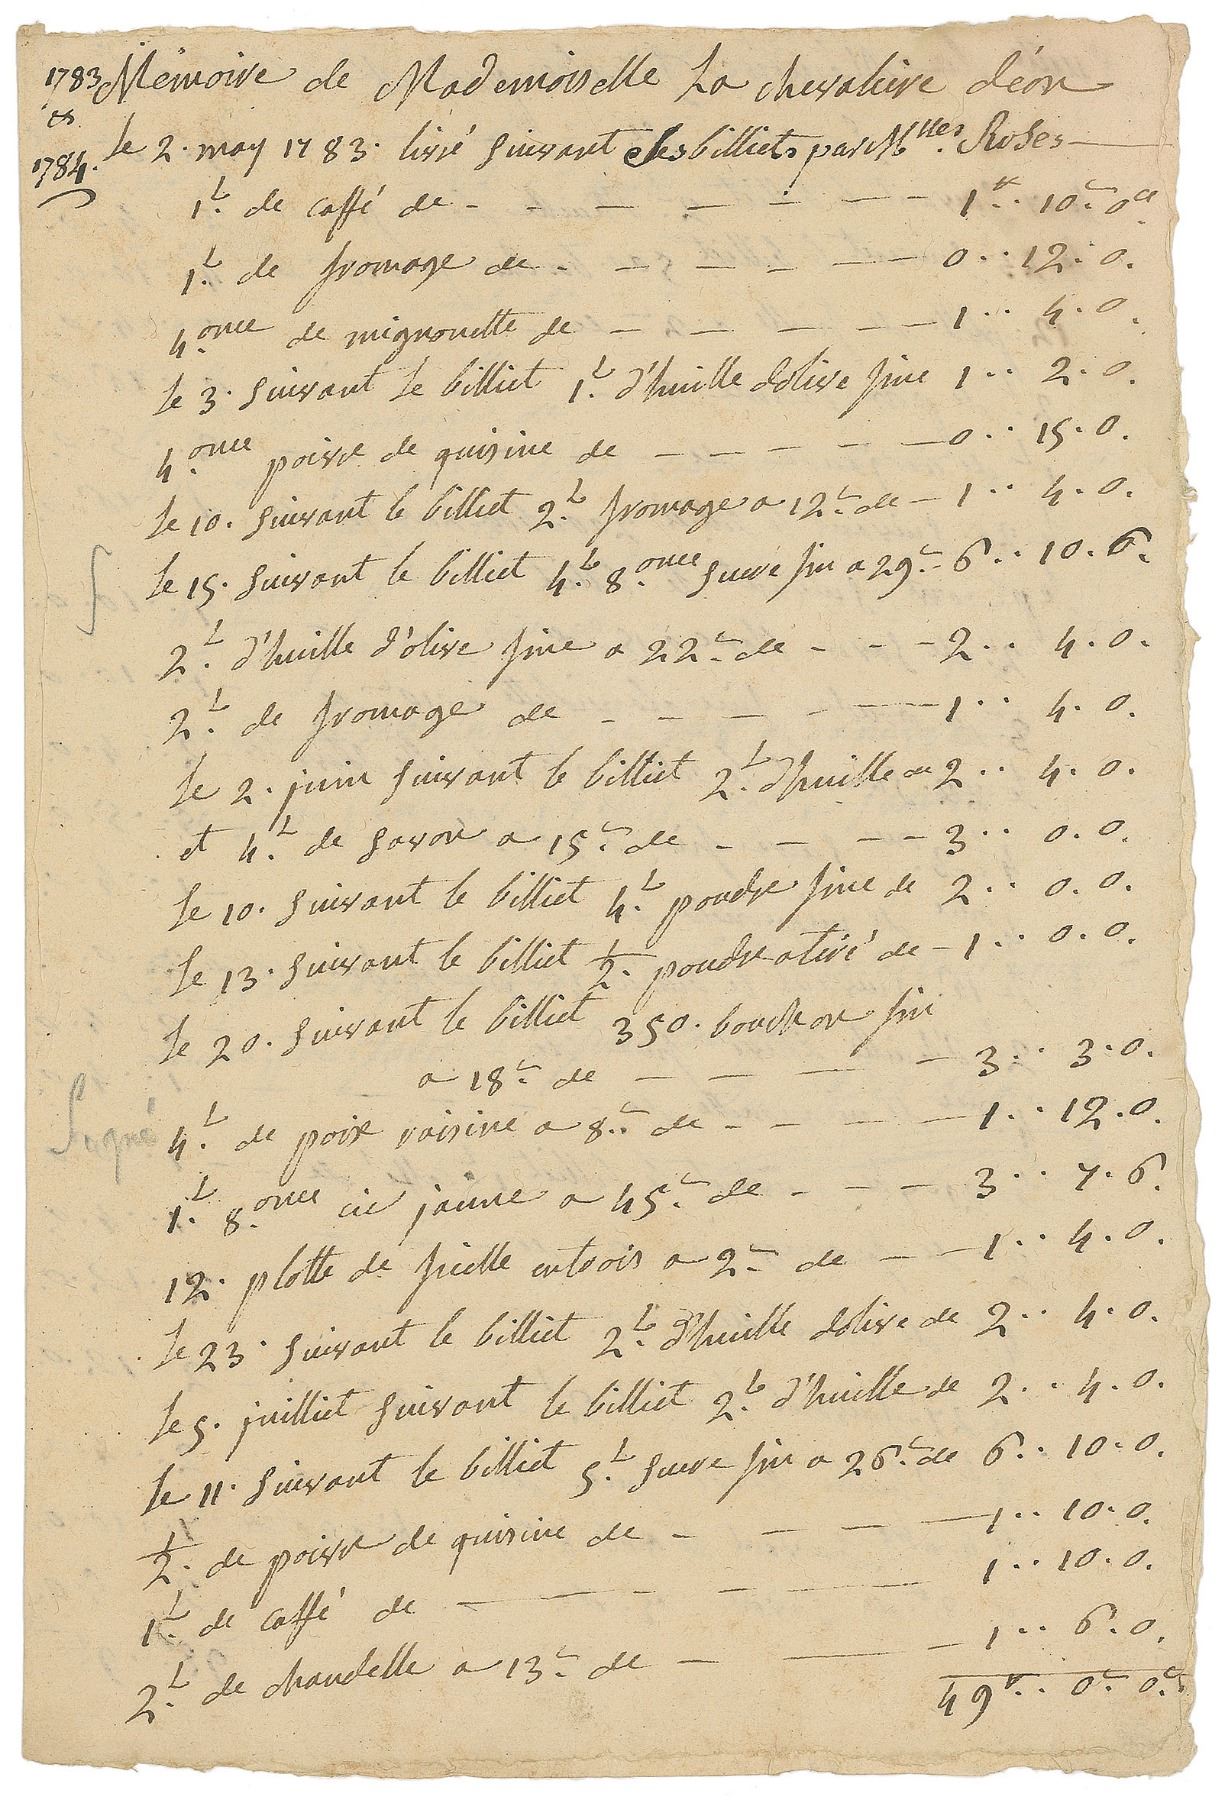 1783 Mémoire de Mademoiselle La chevaliere déon
et
1784.
le 2. may 1783. livré suivant les billiets par Mlles. Roses
1L. de caffé de - - - - - - - 1tt.. 10s 0d
1L. de fromage de - - - - - - 0.. 12. 0.
4.once de mignonette de - - - - - 1.. 4. 0.
le 3. suivant le billiet 1L. d'huille dolive fine 1.. 2. 0.
4.once poivre de quisine de - - - - - 0.. 15. 0.
le 10. suivant le billiet 2L. fromage a 12s de - 1.. 4. 0.
le 15. suivant le billiet 4L. 8.once sucre fin a 29s - 6.. 10. 6.
2L. d'huille d'olive fine a 22s de - - - 2.. 4. 0.
2L. de fromage de - - - - - 1.. 4. 0.
le 2. juin suivant le billiet 2L. d'huille de 2.. 4. 0.
et 4L. de savon a 15s de - - - - 3.. 0. 0.
le 10. suivant le billiet 4L. poudre fine de 2.. 0. 0.
le 13. suivant le billiet 1/2. poudre a tiré de - 1.. 0. 0.
le 20. suivant le billiet 350. bouchon fin
a 18s de - - - - - 3.. 3. 0.
4L. de poix raisine a 8s de - - - - 1.. 12. 0.
1L. 8.once cie jaune a 45s de - - - 3.. 7. 6.
12. plotte de ficelle a 2s de - - 1.. 4. 0.
le 23. suivant le billiet 2L. d'huille dolive de 2.. 4. 0.
le 5. juilliet suivant le billiet 2L. d'huille de 2.. 4. 0.
le 11. suivant le billiet 5L. sucre fin a 26s de 6.. 10. 0.
1/2. de poivre de quisine de - - - - 1.. 10. 0.
1L. de caffé de - - - - - 1.. 10. 0.
2L. de chandelle a 13s de - - - 1.. 6. 0.
49tt.. 0s 0d